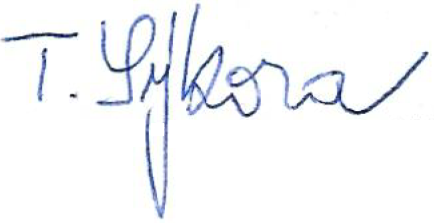 T. Sýkora